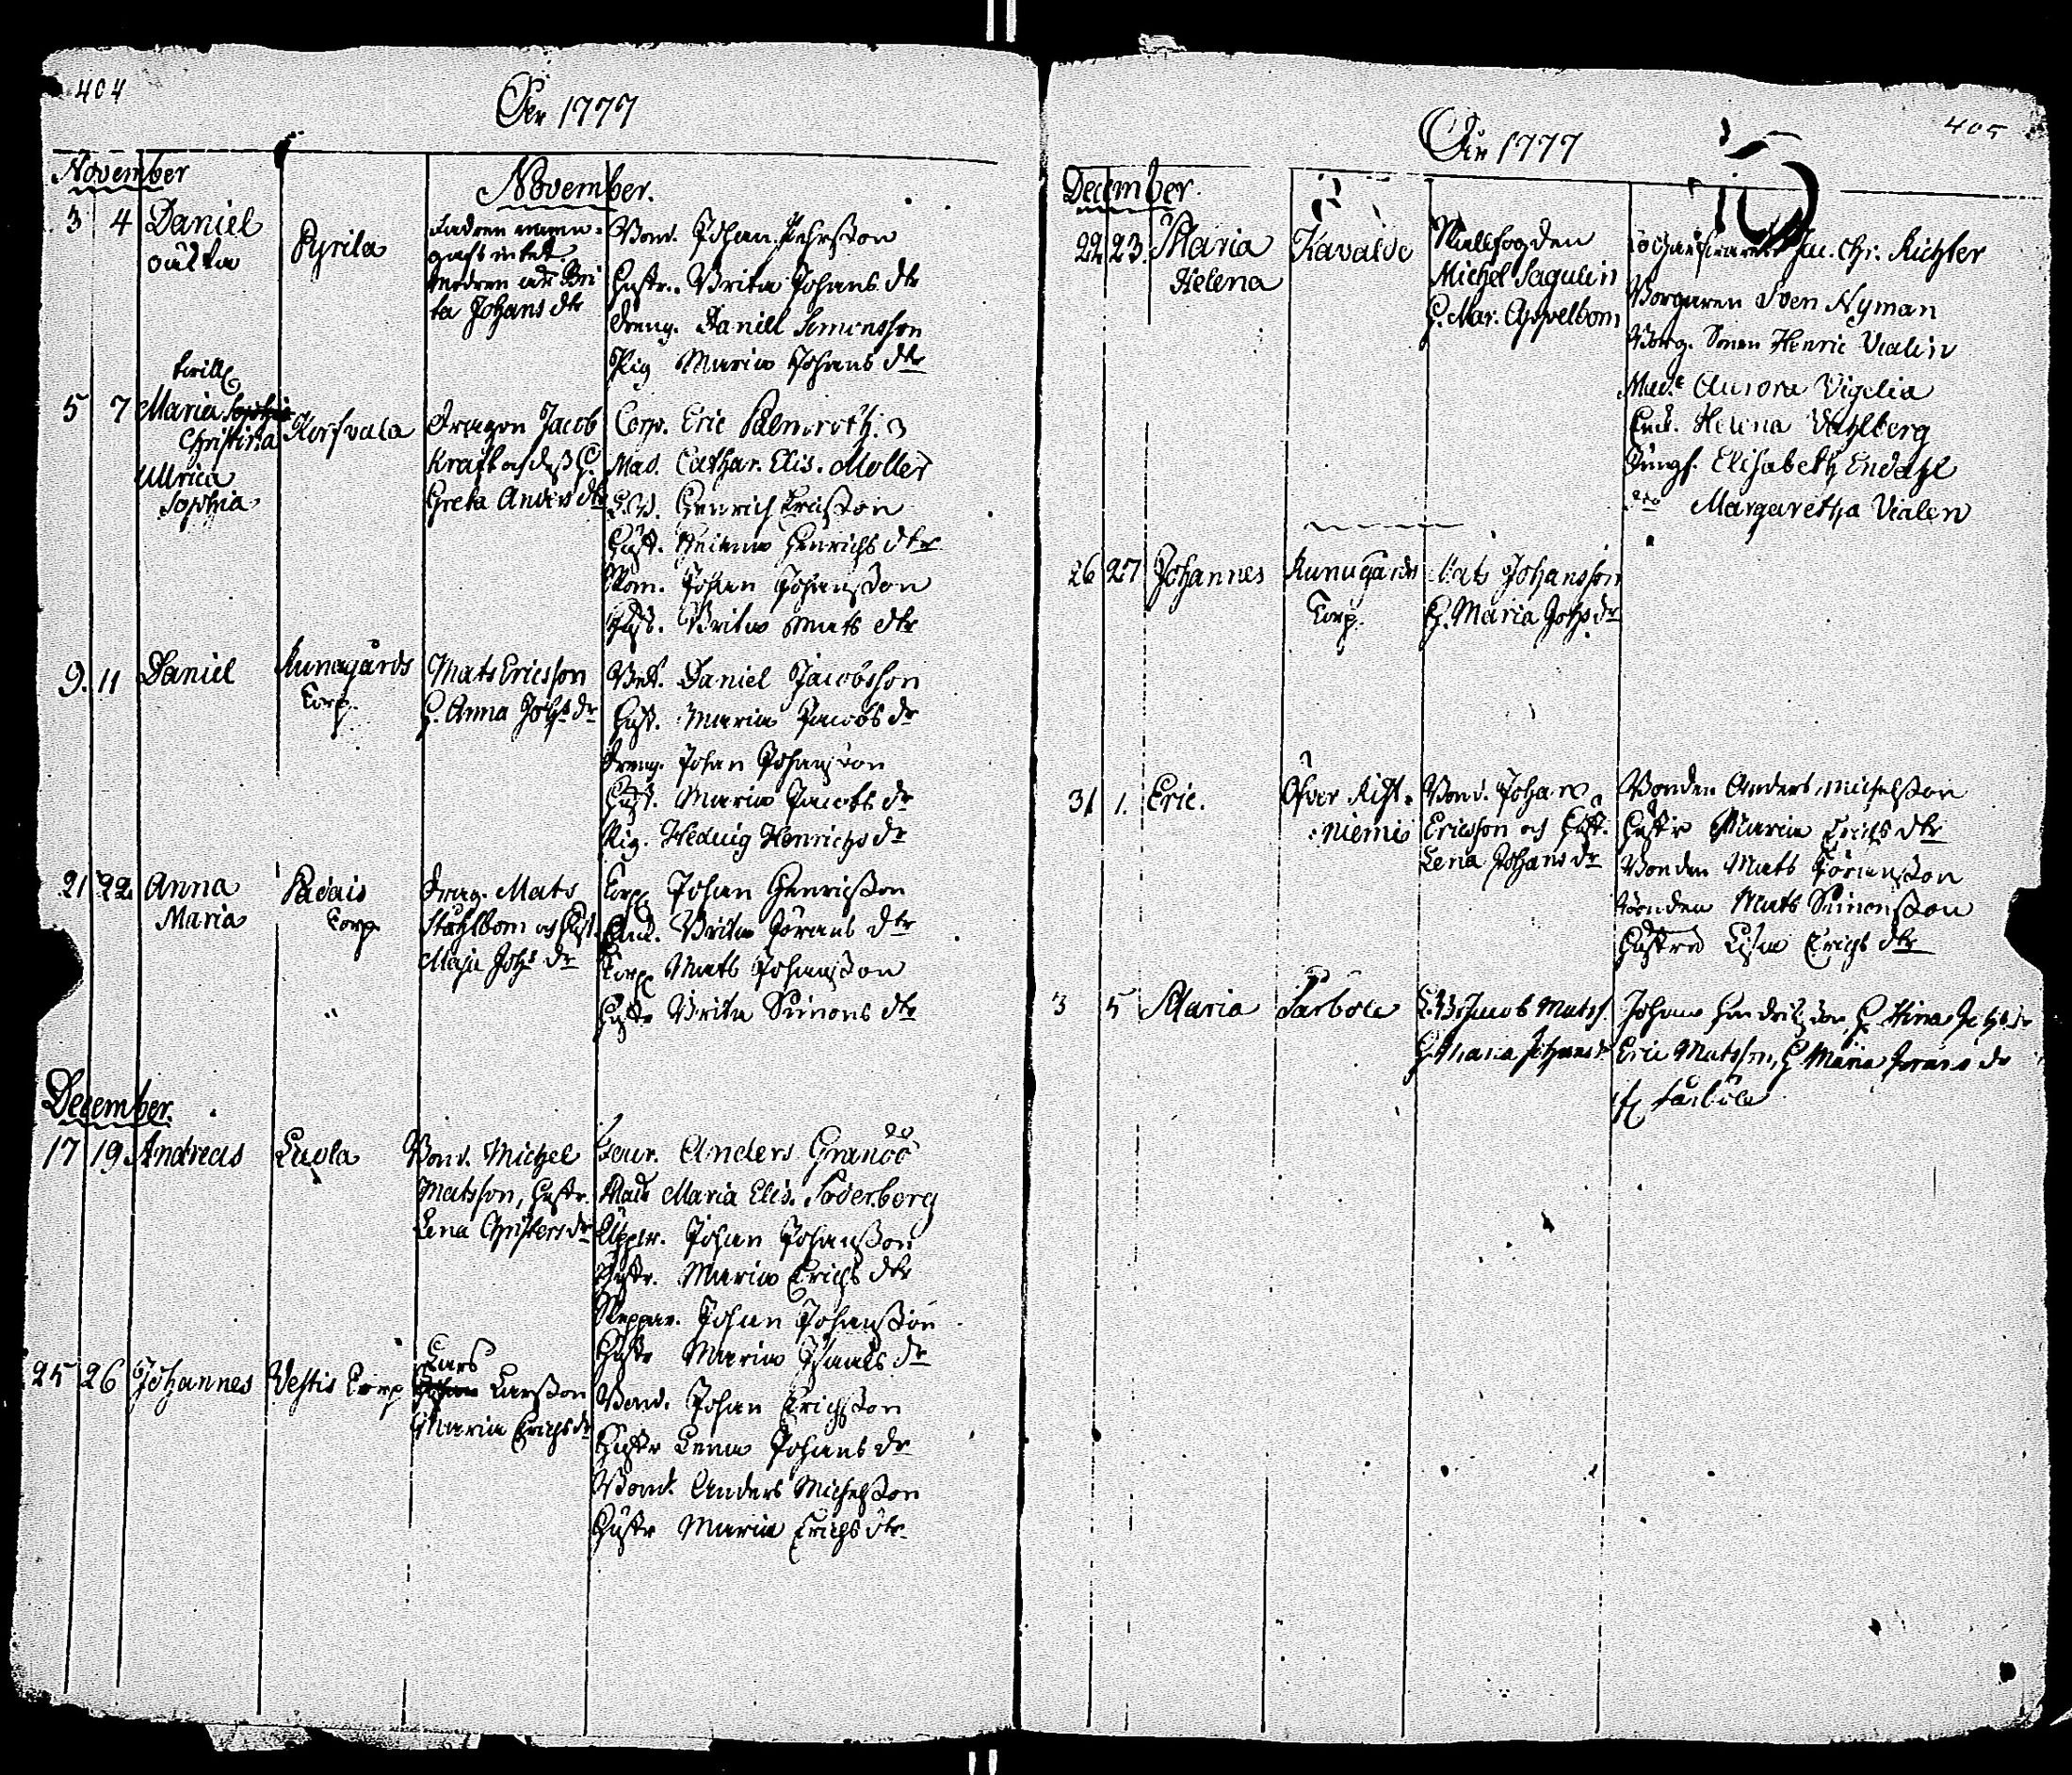 404
År 1777
November
November.
3 4 Daniel Pyrila
oäkta
Fadren
gafs intet.
Modren är Bri
ta Johans dtr
Bond. Johan Pehrsson
Hustr. Brita Johans dtr
Dreng. Daniel Simonsson
Pig Maria Johans dtr
5 7 Maria Sophia Korsvala
Christina
Ullrica
Sophia
Dragon Jacob
Kraft och dess H
Greta Anders dtr
Corp. Eric Palmroth.
Mad. Cathar. Elis. Moller
Henrich Ericsson
Hust. Henrichs dtr
Johan Johansson
Hust. Brita Mats dtr
9. 11 Daniel Kunagårds
Torp.
Mats Ericsson
H. Anna Johs dr
Daniel Jacobsson
Hust. Maria Jacobs dr
Dreng. Johan Johansson
Hust. Maria Jacobs dr
Pig. Hedvig Henrichs dr
21 22 Anna Padais
Maria Torp
Drag. Mats
Ståhlbom och Hust.
Maja Johs dr
Torp Johan Henricsson
Brita Görans dtr
Torp Mats Johansson
Hustr Brita Simons dtr
December.
17 19 Andreas Luola
Bond. Michel
Matsson, Hustr.
Lena Christers dr
Anders Granöö
Mad Maria Elis. Söderborg
Johan Johansson
Hustr. Maria Erichs dtr
Johan Johansson
Hustr Maria Isaacs dr
25 26 Johannes Vestis Torp
Lars
Johan Larsson
H Maria Erichs dr
Bond. Johan Erichsson
Hustr Lena Johans dr
Bond. Anders Michelsson
Hustr Maria Erichs dtr
405
År 1777
December.
22 23. Maria Kavalde
Helena
Michel Sagulin
H. Mar. Appelbom
Jac. Chr. Richter
Borgaren Sven Nyman
Borg. Sonen Henric Vialin
Mad. Aurora Vigelia
Enk. Helena Vahlberg
Jungf. Elisabeth Endahl
Margaretha Vialen
26 27 Johannes Kunugårds
Torp.
Mats Johansson
H. Maria Johs dr
31 1. Eric. Öfver Kist-
niemi
Bond. Johan
Ericsson och Hust.
Lena Johans dr
Bonden Anders Michelsson
Hustr Maria Erichs dtr
Bonden Mats Göransson
Bonden Mats Simonsson
Hustru Lisa Erichs dtr
3 5 Maria Tarböle
Jacob Matss.
H. Maria Johans dr
Johan Hindrichsson, H. Stina Johs dr
Eric Matsson, H Maria Görans dr